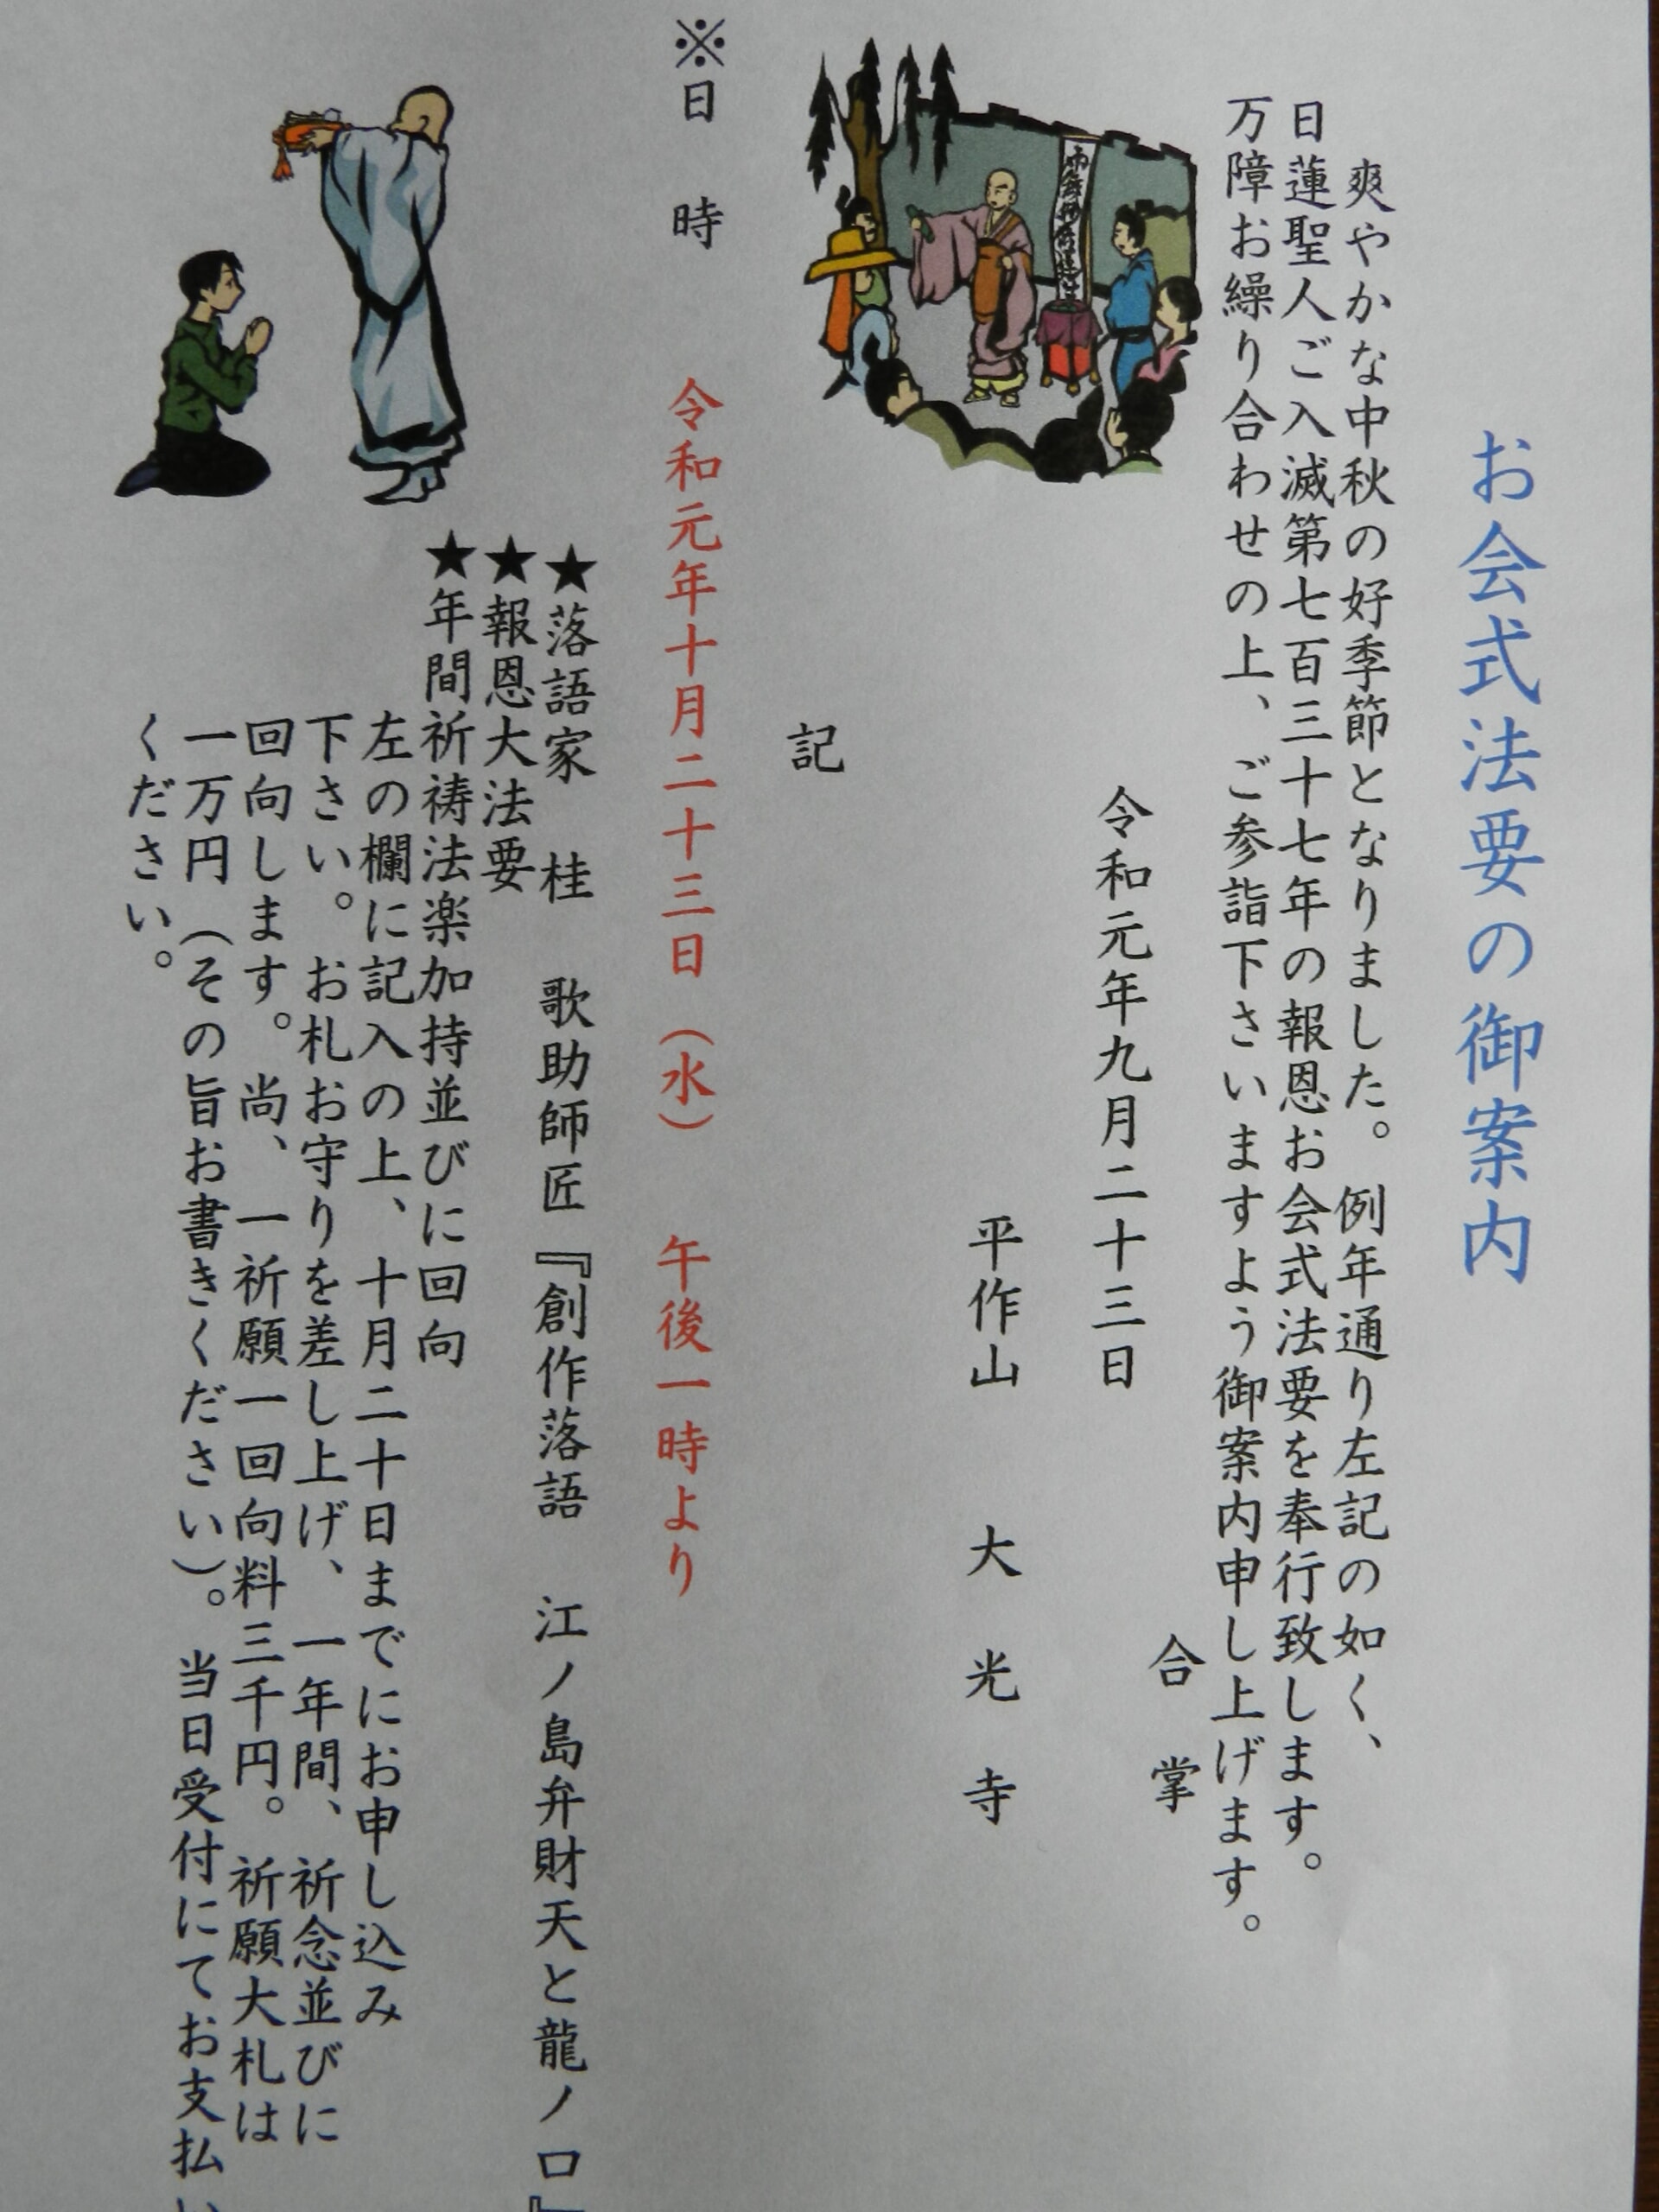 お会式法要の御案内
爽やかな中秋の好季節となりました。例年通り左記の如く、
日蓮聖人ご入滅第七百三十七年の報恩お会式法要を奉行致します。
万障お繰り合わせの上、ご参詣下さいますよう御案内申し上げます。
合掌
令和元年九月二十三日
平作山 大光寺
記
※日 時 令和元年十月二十三日（水） 午後一時より
★落語家 桂 歌助師匠『創作落語 江ノ島弁財天と龍ノ口』
★報恩大法要
★年間祈祷法楽加持並びに回向
左の欄に記入の上、十月二十日までにお申し込み
下さい。お札お守りを差し上げ、一年間、祈念並びに
回向します。尚、一祈願一回向料三千円。祈願大札は
一万円（その旨お書きください）。当日受付にてお支払い
ください。